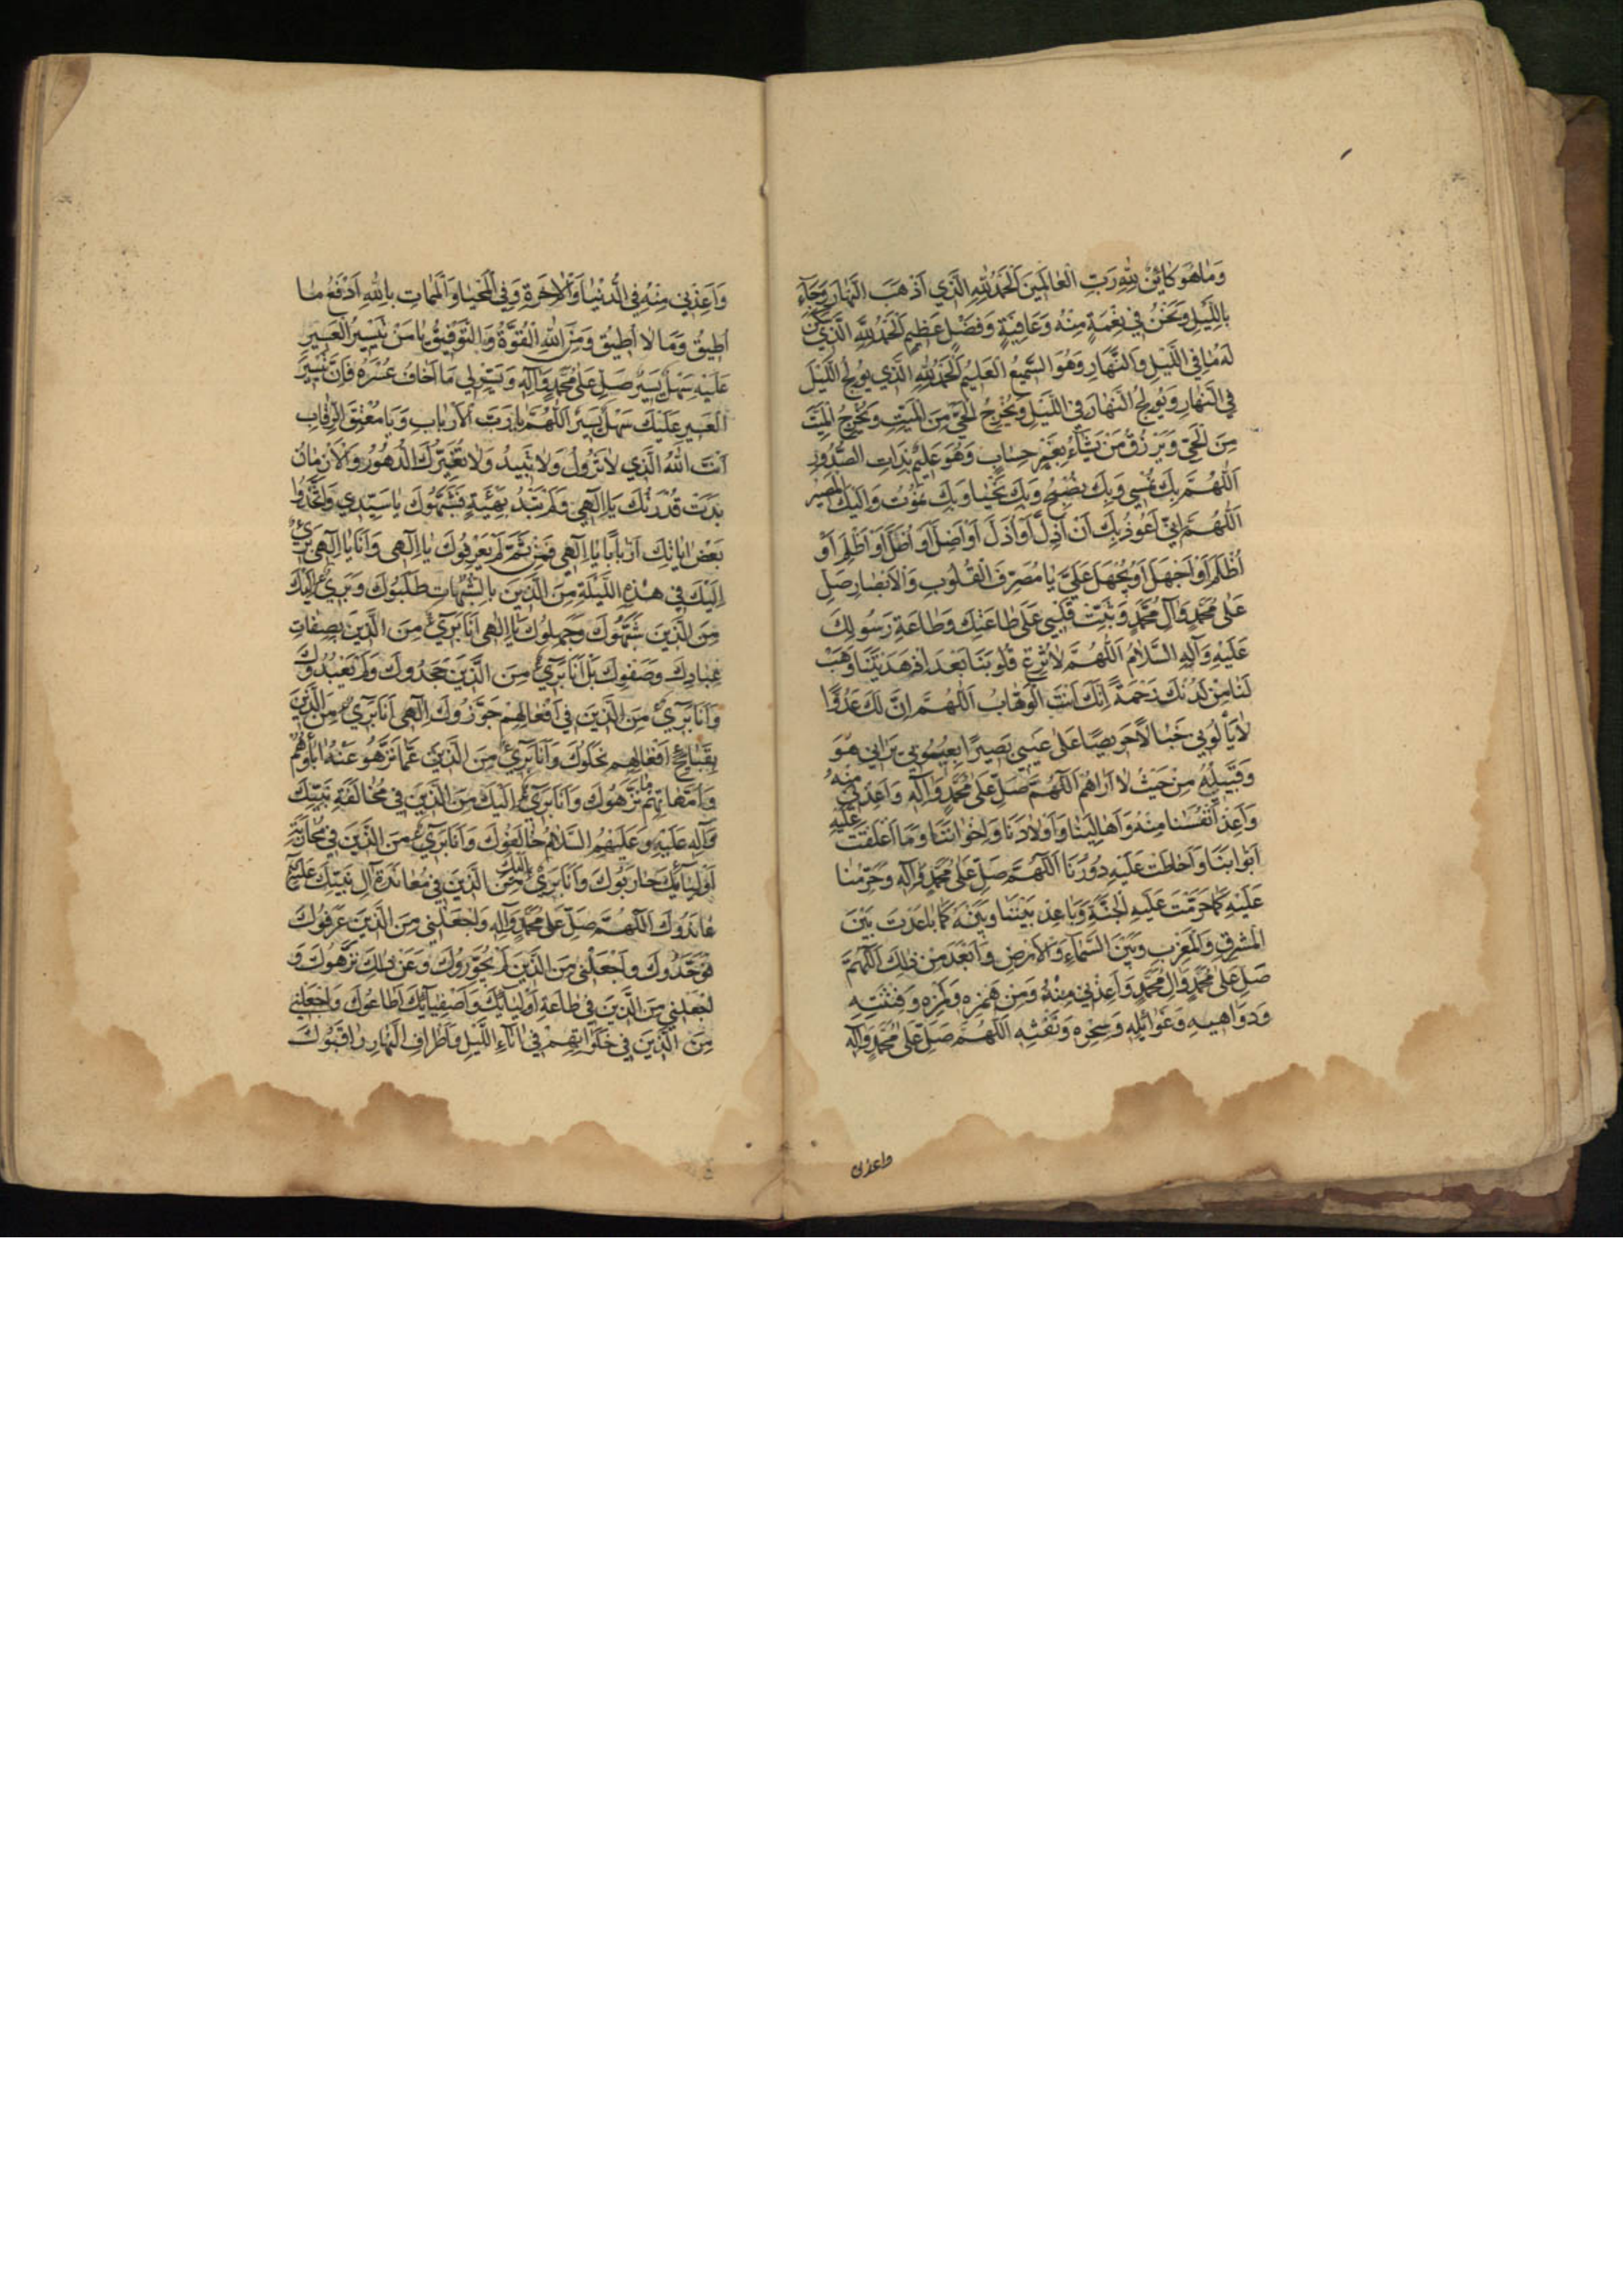 وَمَا هُوَ كَائِنٌ لِلّٰهِ رَبِّ الْعَالَمِينَ اَلْحَمْدُ لِلّٰهِ الَّذِي اَذْهَبَ النَّهَارَ وَجَآءَ
بِاللَّيْلِ وَنَحْنُ فِي نِعْمَةٍ مِنْهُ وَعَافِيَةٍ وَفَضْلٍ عَظِيمٍ اَلْحَمْدُ لِلّٰهِ الَّذِي
لَهُ مَا فِي اللَّيْلِ وَالنَّهَارِ وَهُوَ السَّمِيعُ الْعَلِيمُ اَلْحَمْدُ لِلّٰهِ الَّذِي يُولِجُ اللَّيْلَ
فِي النَّهَارِ وَيُولِجُ النَّهَارَ فِي اللَّيْلِ وَيُخْرِجُ الْحَيَّ مِنَ الْمَيِّتِ وَيُخْرِجُ الْمَيِّتَ
مِنَ الْحَيِّ وَيَرْزُقُ مَنْ يَشَآءُ بِغَيْرِ حِسَابٍ وَهُوَ عَلِيمٌ بِذَاتِ الصُّدُورِ
اَللّٰهُمَّ بِكَ نُمْسِي وَبِكَ نُصْبِحُ وَبِكَ نَحْيَا وَبِكَ نَمُوتُ وَاِلَيْكَ الْمَصِيرُ
اَللّٰهُمَّ اِنِّي اَعُوذُ بِكَ اَنْ اَذِلَّ اَوْ اُذَلَّ اَوْ اَضِلَّ اَوْ اُضَلَّ اَوْ اَظْلِمَ اَوْ
اُظْلَمَ اَوْ اَجْهَلَ اَوْ يُجْهَلَ عَلَيَّ يَا مُصَرِّفَ الْقُلُوبِ وَالْاَبْصَارِ صَلِّ
عَلٰى مُحَمَّدٍ وَآلِ مُحَمَّدٍ وَثَبِّتْ قَلْبِي عَلٰى طَاعَتِكَ وَطَاعَةِ رَسُولِكَ
عَلَيْهِ وَآلِهِ السَّلَامُ اَللّٰهُمَّ لَا تُزِغْ قُلُوبَنَا بَعْدَ اِذْ هَدَيْتَنَا وَهَبْ
لَنَا مِنْ لَدُنْكَ رَحْمَةً اِنَّكَ اَنْتَ الْوَهَّابُ اَللّٰهُمَّ اِنَّ لَكَ عَدُوًّا
لَا يَأْلُونِي خَبَالًا حَرِيصًا عَلٰى عَيْبِي بَصِيرًا بِعُيُوبِي يَرَانِي هُوَ
وَقَبِيلُهُ مِنْ حَيْثُ لَا اَرَاهُمْ اَللّٰهُمَّ صَلِّ عَلٰى مُحَمَّدٍ وَآلِهِ وَاَعِذْنِي مِنْهُ
وَاَعِذْ اَنْفُسَنَا مِنْهُ وَاَهَالِيَنَا وَاَوْلَادَنَا وَاِخْوَانَنَا وَمَا اَغْلَقْتَ عَلَيْهِ
اَبْوَابَنَا وَاَحَاطَتْ عَلَيْهِ دُورُنَا اَللّٰهُمَّ صَلِّ عَلٰى مُحَمَّدٍ وَآلِهِ وَحَرِّمْنَا
عَلَيْهِ كَمَا حَرَّمْتَ عَلَيْهِ الْجَنَّةَ وَبَاعِدْ بَيْنَنَا وَبَيْنَهُ كَمَا بَاعَدْتَ بَيْنَ
الْمَشْرِقِ وَالْمَغْرِبِ وَبَيْنَ السَّمَآءِ وَالْاَرْضِ وَاَبْعَدَ مِنْ ذٰلِكَ اَللّٰهُمَّ
صَلِّ عَلٰى مُحَمَّدٍ وَآلِ مُحَمَّدٍ وَاَعِذْنِي مِنْهُ وَمِنْ هَمْزِهِ وَلَمْزِهِ وَفِتْنَتِهِ
وَدَوَاهِيهِ وَغَوَائِلِهِ وَسِحْرِهِ وَنَفْثِهِ اَللّٰهُمَّ صَلِّ عَلٰى مُحَمَّدٍ وَآلِهِ
واعذنى
وَاَعِذْنِي مِنْهُ فِي الدُّنْيَا وَالْاٰخِرَةِ وَفِي الْمَحْيَا وَالْمَمَاتِ بِاللّٰهِ اَدْفَعُ مَا
اُطِيقُ وَمَا لَا اُطِيقُ وَمِنَ اللّٰهِ الْقُوَّةُ وَالتَّوْفِيقُ يَا مَنْ تَيْسِيرُ الْعَسِيرِ
عَلَيْهِ سَهْلٌ يَسِيرٌ صَلِّ عَلٰى مُحَمَّدٍ وَآلِهِ وَيَسِّرْ لِي مَا اَخَافُ عُسْرَهُ فَاِنَّ تَيْسِيرَ
الْعَسِيرِ عَلَيْكَ سَهْلٌ يَسِيرٌ اَللّٰهُمَّ يَا رَبَّ الْاَرْبَابِ وَيَا مُعْتِقَ الرِّقَابِ
اَنْتَ اللّٰهُ الَّذِي لَا تَزُولُ وَلَا تَبِيدُ وَلَا تُغَيِّرُكَ الدُّهُورُ وَالْاَزْمَانُ
بَدَتْ قُدْرَتُكَ يَا اِلٰهِي وَلَمْ تَبْدُ هَيْئَةٌ فَشَبَّهُوكَ يَا سَيِّدِي وَاتَّخَذُوا
بَعْضَ اٰيَاتِكَ اَرْبَابًا يَا اِلٰهِي فَمِنْ ثَمَّ لَمْ يَعْرِفُوكَ يَا اِلٰهِي وَاَنَا يَا اِلٰهِي بَرِيٓءٌ
اِلَيْكَ فِي هٰذِهِ اللَّيْلَةِ مِنَ الَّذِينَ بِالشُّبُهَاتِ طَلَبُوكَ وَبَرِيٓءٌ اِلَيْكَ
مِنَ الَّذِينَ شَبَّهُوكَ وَجَهِلُوكَ يَا اِلٰهِي اَنَا بَرِيٓءٌ مِنَ الَّذِينَ بِصِفَاتِ
عِبَادِكَ وَصَفُوكَ بَلْ اَنَا بَرِيٓءٌ مِنَ الَّذِينَ جَحَدُوكَ وَلَمْ يَعْبُدُوكَ
وَاَنَا بَرِيٓءٌ مِنَ الَّذِينَ فِي اَفْعَالِهِمْ جَوَّرُوكَ اِلٰهِي اَنَا بَرِيٓءٌ مِنَ الَّذِينَ
بِقَبَائِحِ اَفْعَالِهِمْ نَحَلُوكَ وَاَنَا بَرِيٓءٌ مِنَ الَّذِينَ عَمَّا نَزَّهُوا عَنْهُ اٰبَآءَهُمْ
وَاُمَّهَاتِهِمْ مَا نَزَّهُوكَ وَاَنَا بَرِيٓءٌ اِلَيْكَ مِنَ الَّذِينَ فِي مُخَالَفَةِ نَبِيِّكَ
وَآلِهِ عَلَيْهِ وَعَلَيْهِمُ السَّلَامُ خَالَفُوكَ وَاَنَا بَرِيٓءٌ مِنَ الَّذِينَ فِي مُحَارَبَةِ
اَوْلِيَآئِكَ حَارَبُوكَ وَاَنَا بَرِيٓءٌ اِلَيْكَ مِنَ الَّذِينَ فِي مُعَانَدَةِ آلِ نَبِيِّكَ
عَانَدُوكَ اَللّٰهُمَّ صَلِّ عَلٰى مُحَمَّدٍ وَآلِهِ وَاجْعَلْنِي مِنَ الَّذِينَ عَرَفُوكَ
فَوَحَّدُوكَ وَاجْعَلْنِي مِنَ الَّذِينَ لَمْ يُجَوِّرُوكَ وَعَنْ ذٰلِكَ نَزَّهُوكَ وَ
اجْعَلْنِي مِنَ الَّذِينَ فِي طَاعَةِ اَوْلِيَآئِكَ وَاَصْفِيَآئِكَ اَطَاعُوكَ وَاجْعَلْنِي
مِنَ الَّذِينَ فِي خَلَوَاتِهِمْ فِي اٰنَآءِ اللَّيْلِ وَاَطْرَافِ النَّهَارِ رَاقَبُوكَ